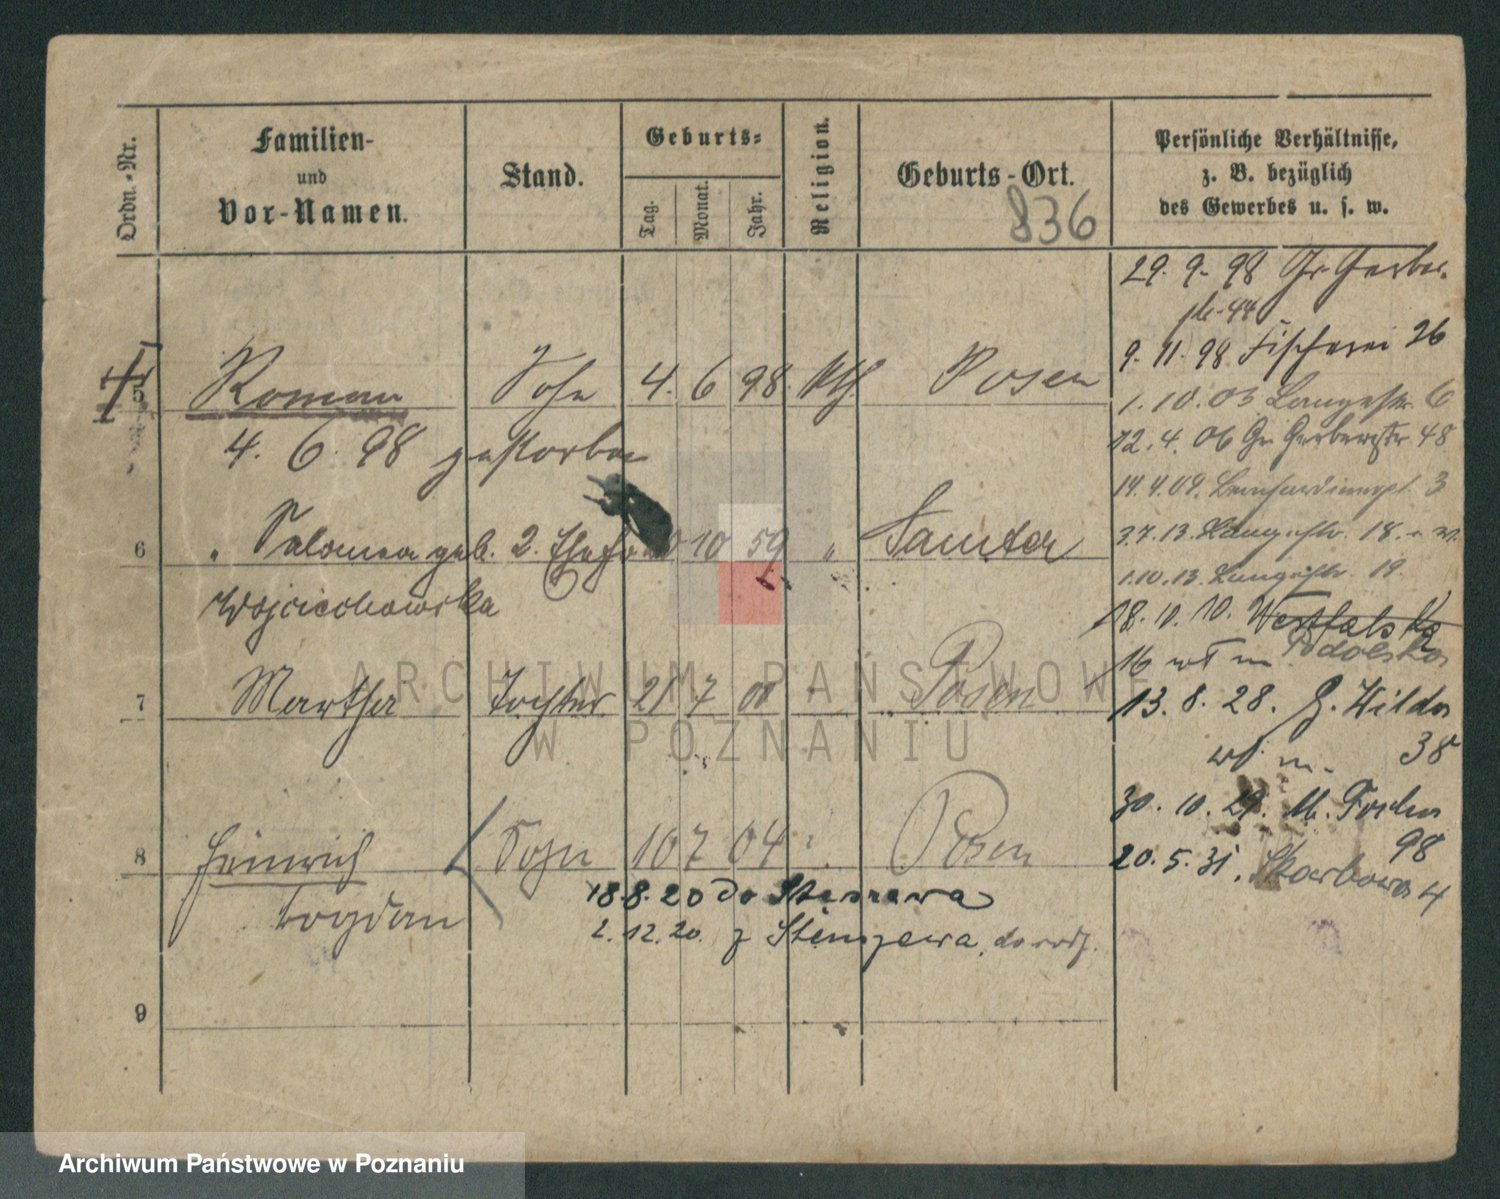 Ordn.-Nr.
Familien-
und
Vor-Namen.
Stand.
Geburts-
Tag.
Monat.
Jahr.
Religion.
Geburts-Ort.
836
Persönliche Verhältnisse,
z. B. bezüglich
des Gewerbes u. s. w.
29. 9. 98 Gr. Gerber-
44
9. 11. 98 Fischerei 26
5 Roman Sohn 4. 6 98. kth. Posen
1. 10. 03 Langestr. 6
4. 6. 98 gestorben
12. 4. 06 Gr. Gerberstr. 48
14. 4. 09. Bernhardinerpl. 3
6 " Salomea geb. 2. Ehefrau 10 59 " Samter
Wojciechowska
2.7.13. Langestr. 18.
1.10.13. Langestr. 19.
18. 10. 10. Westfalska
16 wt m Podolska
7 Martha Tochter 21 7 00 " Posen
13. 8. 28. G. Wilda
wt. m. 38
30. 10. 29. M. Focha
98
8 Heinrich Sohn 10 7 04 Posen
20. 5. 31. Skarbowa 4
Bogdan
18.8.20 do Stenszewa
2.12.20. z Stenszewa, do rodz.
9
ARCHIWUM PAŃSTWOWE
W POZNANIU
Archiwum Państwowe w Poznaniu